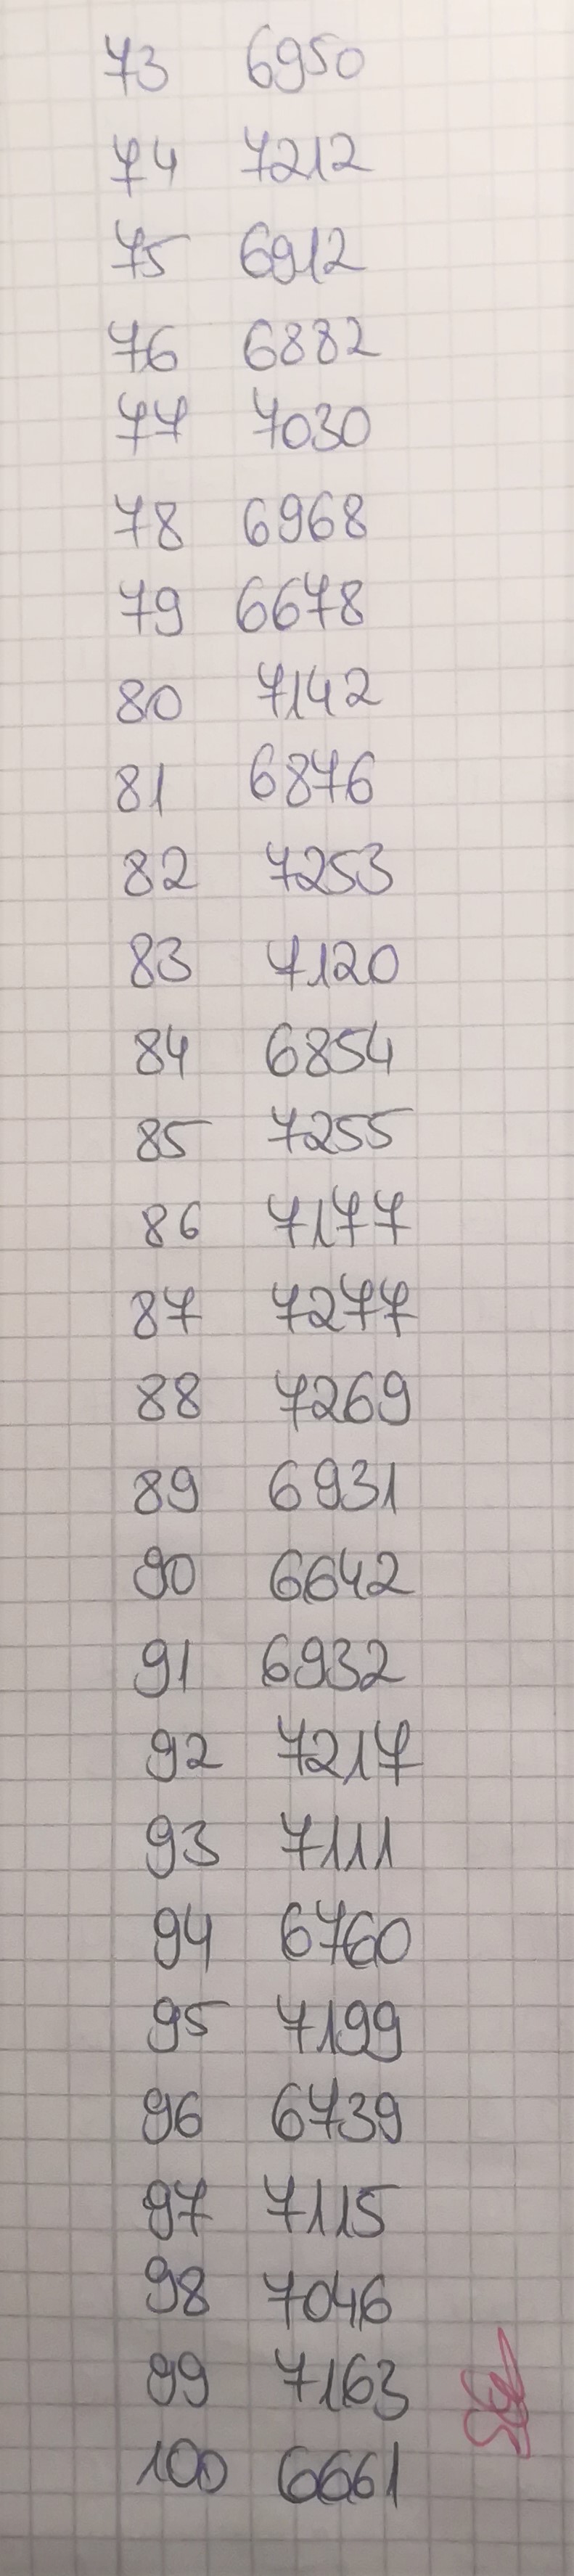 73 6950
74 7212
75 6912
76 6882
77 7030
78 6968
79 6678
80 7142
81 6876
82 7253
83 7120
84 6854
85 7255
86 7177
87 7277
88 7269
89 6931
90 6642
91 6932
92 7217
93 7111
94 6760
95 7199
96 6739
97 7115
98 7046
99 7163
100 6661